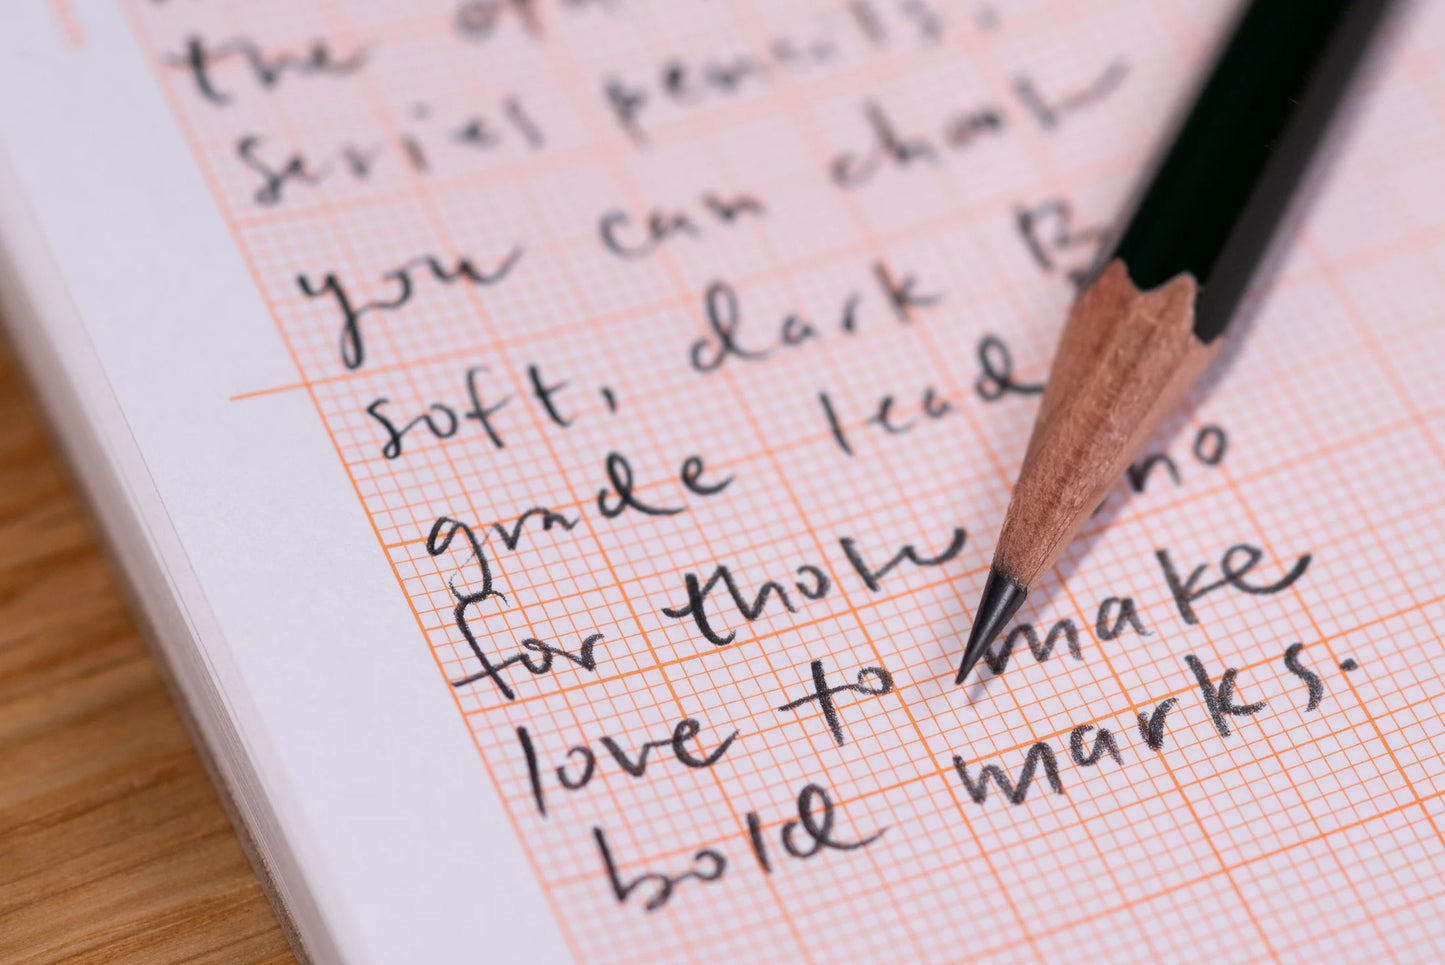 the
series pencils.
you can choose
soft, dark B
grade lead
for those who
love to make
bold marks.